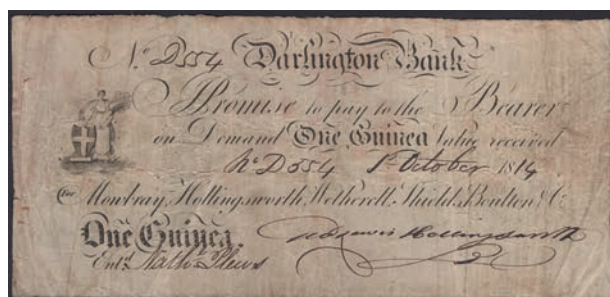 No. D554 Darlington Bank
I Promise to pay to the Bearer
on Demand One Guinea Value received
No D554 1st October 1814
For Mowbray, Hollingsworth, Wetherell, Shield, Boulton & Co.
One Guinea. Hollingsworth
Entd. Nathl. Plews